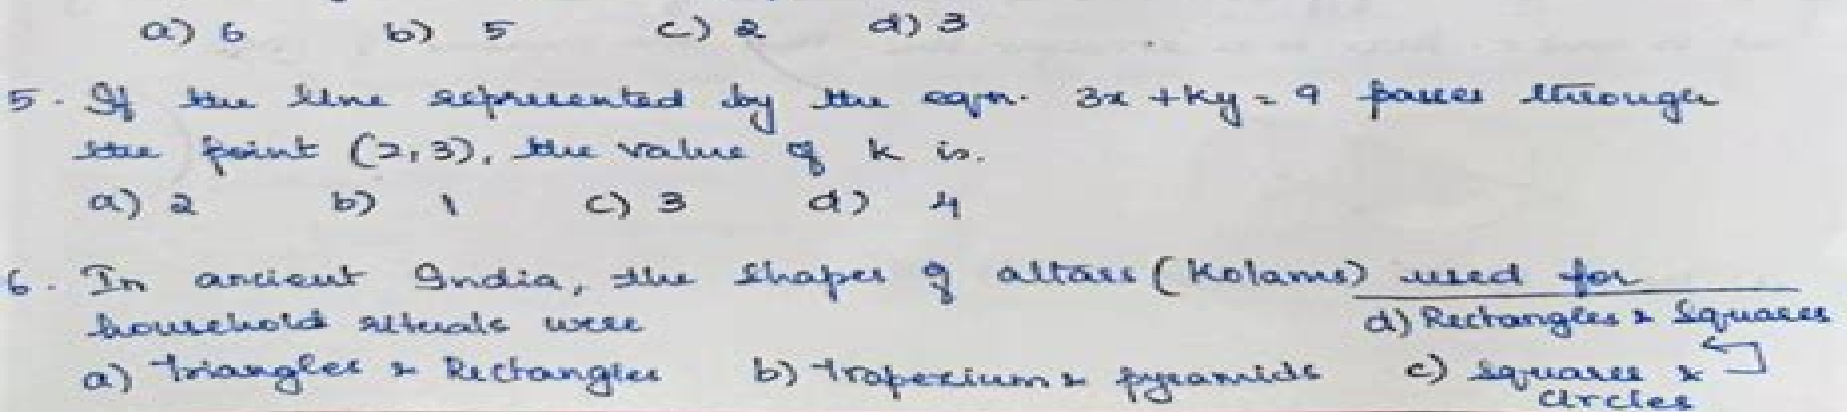 a) 6 b) 5 c) 2 d) 3
5. If the line represented by the eqn. 3x + ky = 9 passes through
the point (2,3), the value of k is.
a) 2 b) 1 c) 3 d) 4
6. In ancient India, the shapes of altars (Kolams) used for
household rituals were
d) Rectangles & Squares
a) Triangles & Rectangles b) Trapezium & pyramids c) squares &
circles